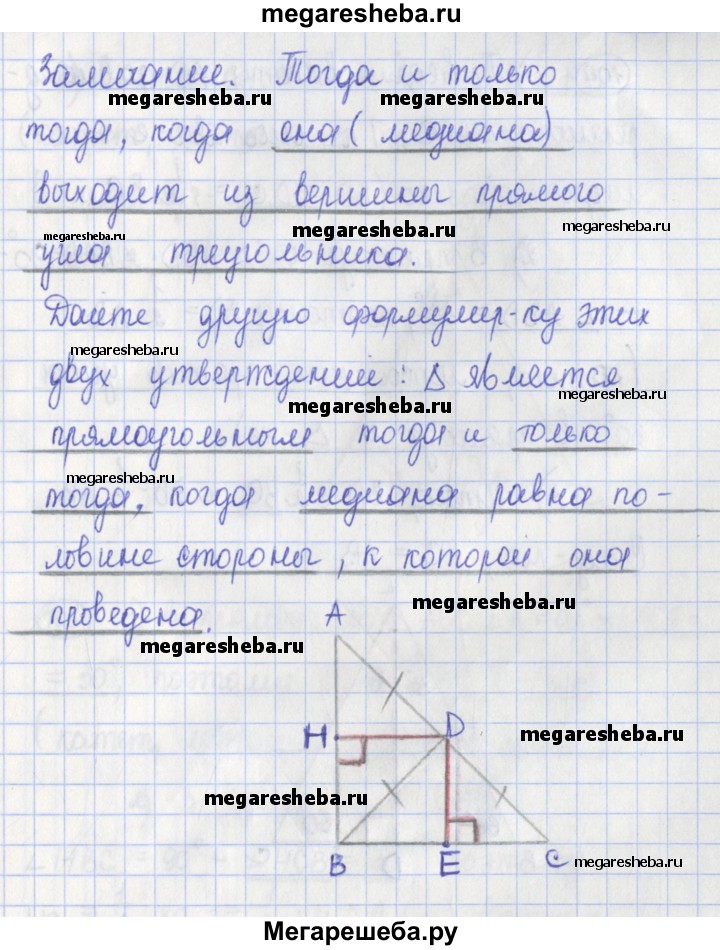 megaresheba.ru
Замечание. Тогда и только
megaresheba.ru megaresheba.ru
тогда, когда она (медиана)
выходит из вершины прямого
megaresheba.ru megaresheba.ru megaresheba.ru
угла треугольника.
Дайте другую формулир-ку этих
megaresheba.ru
двух утверждений: Δ является
megaresheba.ru megaresheba.ru
прямоугольным тогда и только
megaresheba.ru
тогда, когда медиана равна по-
ловине стороны, к которой она
megaresheba.ru
проведена.
megaresheba.ru
A
H D
megaresheba.ru
megaresheba.ru
B E C
megaresheba.ru
Мегарешеба.ру